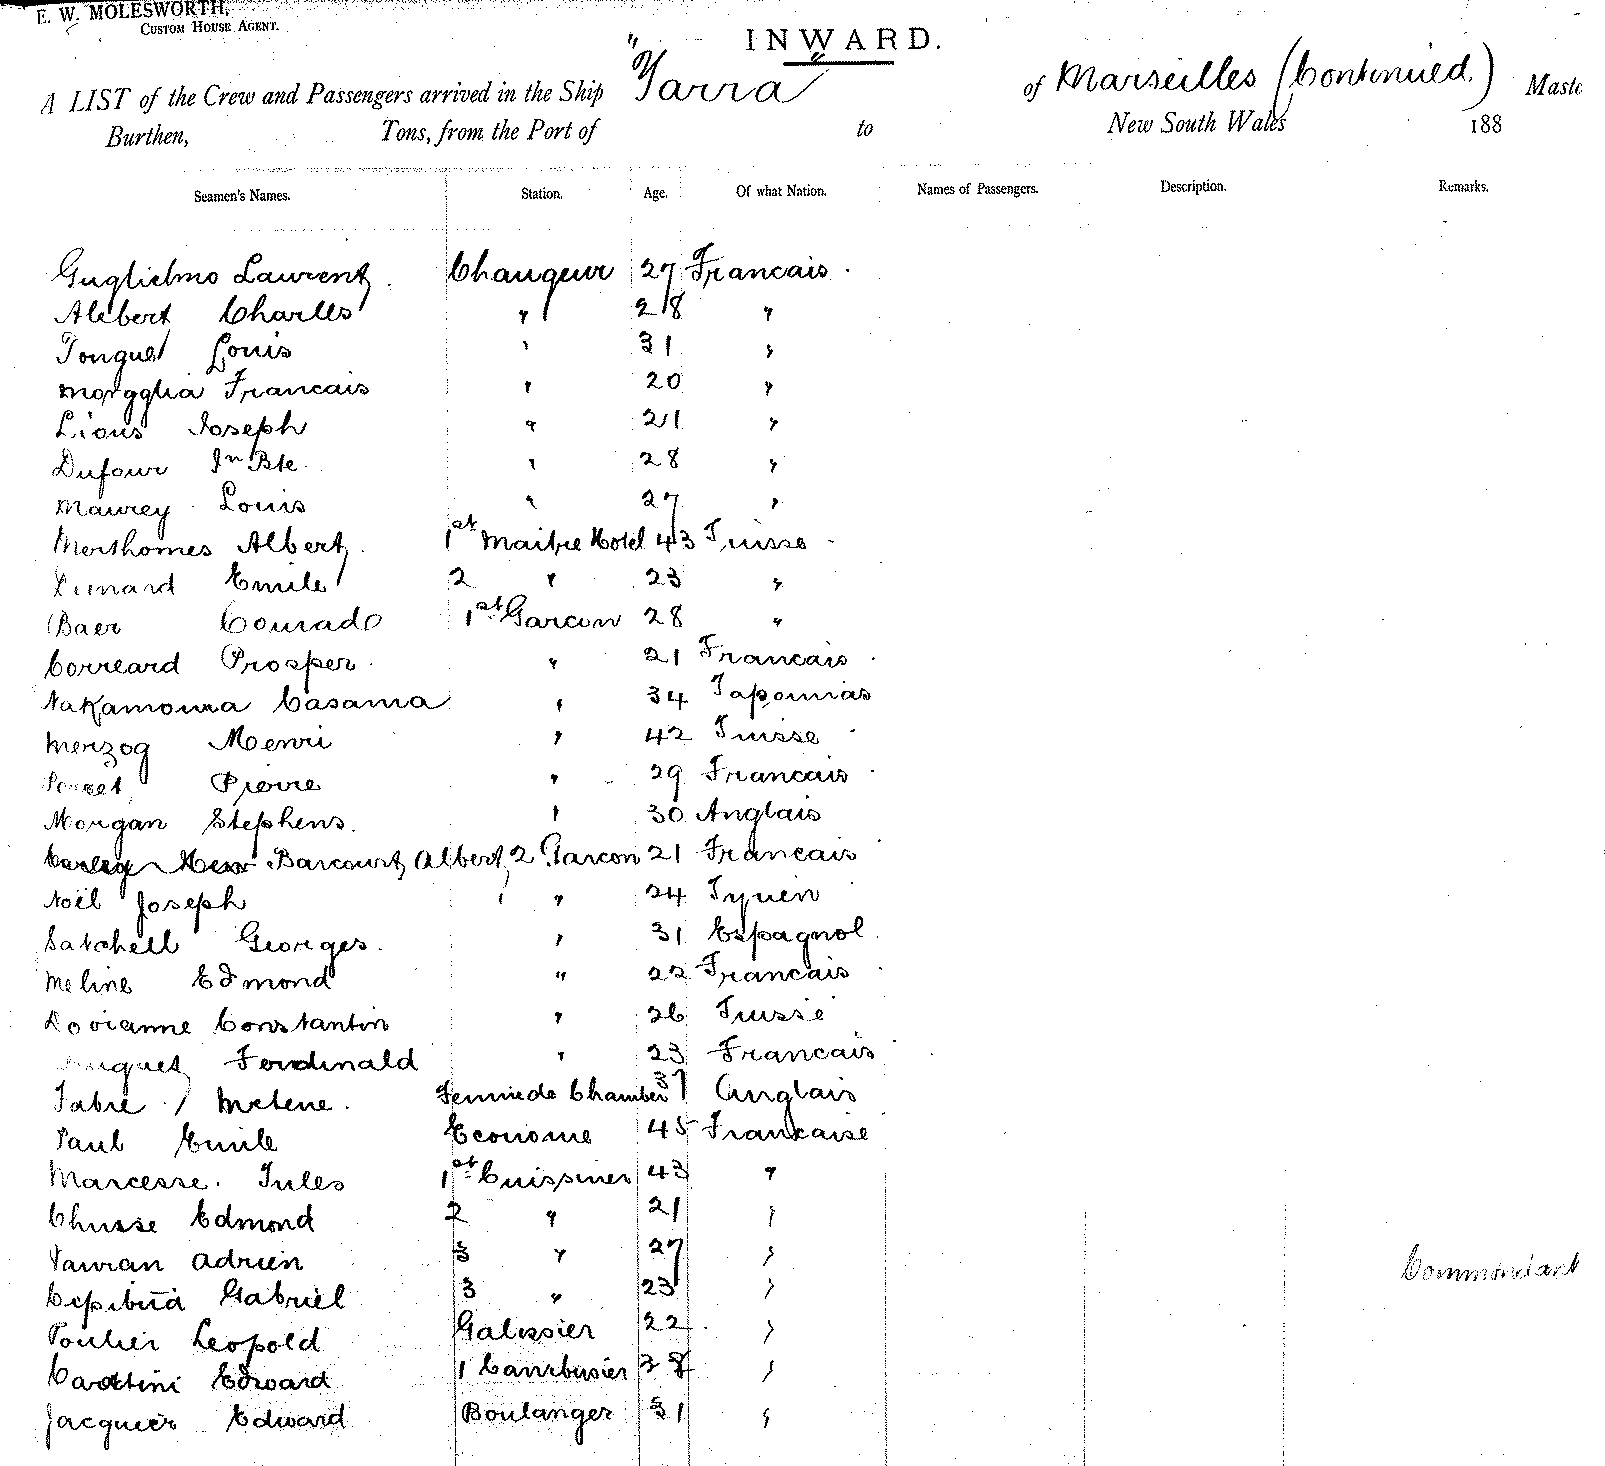 E. W. MOLESWORTH,
CUSTOM HOUSE AGENT.
INWARD.
A LIST of the Crew and Passengers arrived in the Ship "Yarra" of Marseilles (Continued.) Maste
Burthen, Tons, from the Port of to New South Wales 188
Seamen's Names. Station. Age. Of what Nation. Names of Passengers. Description. Remarks.
Guglielmo Laurent. Chaugeur 27 Francais.
Alebert Charles " 28 "
Tonquet Louis " 31 "
Morgglia Francais " 20 "
Lions Joseph " 21 "
Dufour Jn Bte. " 28 "
Maurey Louis " 27 "
Merthomes Albert. 1st Maitre Hotel 43 Suisse.
Emile 2 " 23 "
Baer Conrado 1st Garcon 28 "
Correard Prosper. " 21 Francais.
Nakamoura Casama " 34 Taponias
Merzog Menri " 42 Suisse.
Pierre " 29 Francais.
Morgan Stephens. " 30 Anglais
Barcourt Albert 2 Garcon 21 Francais
Noël Joseph " 24
Satchell Georges. " 31 Espagnol
Meline Edmond " 22 Francais
Dovianne Constantin " 26 Suisse
Ferdinald " 23 Francais
Fabre Melene. Femme de Chambre 37 Anglais
Paul Emile Econome 45 Francaise
Marcesse. Jules 1st Cuissiner 43 "
Chusse Edmond 2 " 21 "
Tauran Adrien 3 " 27 "
Gabriel 3 " 23 "
Poulier Leopold Galissier 22. "
Cardtini Edward 1 Cambusier "
Jacquier Edward Boulanger 31 "
Commandant